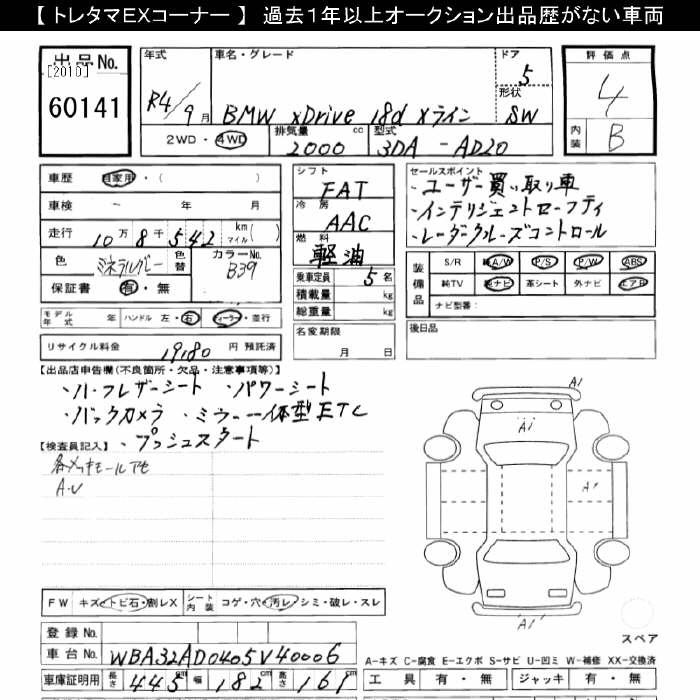 【 トレタマEXコーナー 】 過去１年以上オークション出品歴がない車両
出品No.
[2010]
60141
年式
R4/9月
車名・グレード
BMW xDrive 18d Xライン
ドア
5
形状
SW
2WD・4WD
排気量
2000 cc
型式
3DA - AD20
評価点
4
内装
B
車歴 自家用・( )
車検 - 年 月
走行 10万8千542 km マイル( )
色 ミネラルグレー 色替 カラーNo. B39
保証書 有・無
モデル年式 年 ハンドル 左・右 ディーラー・並行
リサイクル料金 19,180 円 預託済
シフト
FAT
冷房
AAC
燃料
軽油
乗車定員 5名
積載量 kg
総重量 kg
名変期限
月 日
セールスポイント
・ユーザー買い取り車
・インテリジェントセーフティ
・レーダークルーズコントロール
装備品
S/R 純A/W P/S P/W ABS
純TV 純ナビ 革シート 外ナビ エアB
ナビ型番：
後日品
【出品店申告欄(不良箇所・欠品・注意事項等)】
・ハーフレザーシート ・パワーシート
・バックカメラ ・ミラー一体型ETC
・プッシュスタート
【検査員記入】
各メッキモール
A.U
FW キズ・トビ石・割レX シート内装 コゲ・穴・汚レ・シミ・破レ・スレ
登録No.
車台No. WBA32AD0405V40006
車庫証明用 長さ 445cm 幅 182cm 高さ 161cm
A1
A1
A1
A1
A1
スペア
A-キズ C-腐食 E-エクボ S-サビ U-凹ミ W-補修 XX-交換済
工具 有・無 ジャッキ 有・無